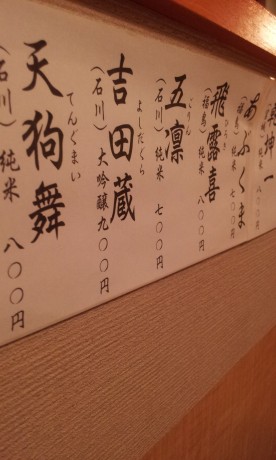 乾坤一
純米 八〇〇円
あぶくま
(福島) 純米 七〇〇円
飛露喜
(福島) 純米 八〇〇円
ごりん
五凛
(石川) 純米 七〇〇円
よしだぐら
吉田蔵
(石川) 大吟醸 九〇〇円
てんぐまい
天狗舞
(石川) 純米 八〇〇円